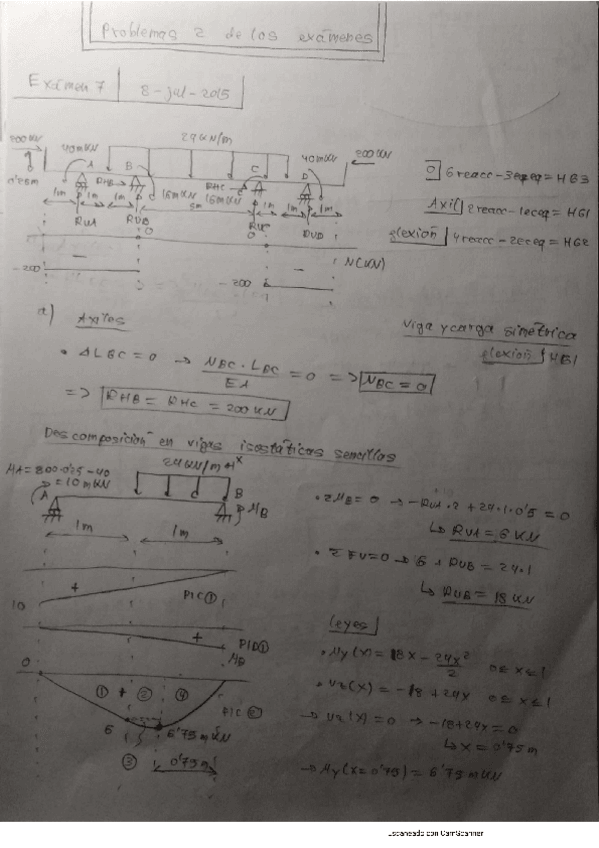 Problemas 2 de los exámenes
Exámen 7 | 8-jul-2015
24 KN/m
200 KN
40mKN
A
B
C
D
40mKN
200 KN
0'25m
RHB
16mKN
16mKN
RHC
1m
1m
1m
5m
1m
1m
1m
RVA
RVB
RVC
RVD
6 reacc - 3eceq = HG3
Axil | 2 reacc - 1eceq = HG1
flexión | 4 reacc - 2eceq = HG2
N(KN)
-200
-
-200
-
a) Axiles
Viga y carga simétrica
flexión } HG1
• ΔLBC = 0 → NBC · LBC / EA = 0 => NBC = 0
=> RHB = RHC = 200 KN
Descomposición en vigas isostáticas sencillas
MA = 200·0'25-40
= 10 mKN
24 KN/m
x
A
B
MB
1m
1m
• ΣMB = 0 → -RVA·2 + 24·1·0'5 = 0
↳ RVA = 6 KN
• ΣFV = 0 → 6 + RVB = 24·1
↳ RVB = 18 KN
10
+
PIC①
+
PID①
MB
0
① + ② ④
PIC②
6
6'75 mKN
③
0'75m
leyes
• My(x) = 18x - 24x²/2 0≤x≤1
• Vz(x) = -18 + 24x 0≤x≤1
→ Vz(x) = 0 → -18+24x = 0
↳ x = 0'75m
→ My(x=0'75) = 6'75 mKN
Escaneado con CamScanner